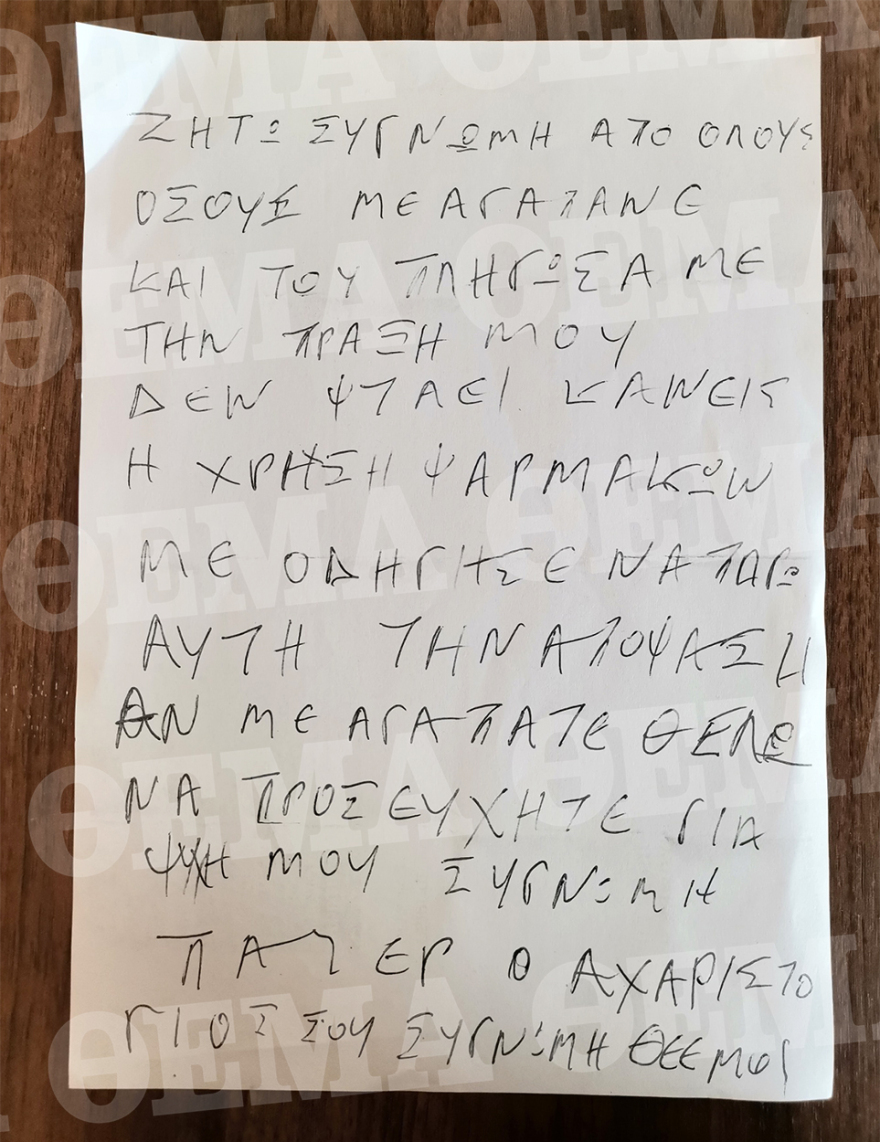 ΖΗΤΩ ΣΥΓΝΩΜΗ ΑΠΟ ΟΛΟΥΣ
ΟΣΟΥΣ ΜΕ ΑΓΑΠΑΝΕ
ΚΑΙ ΤΟΥ ΠΛΗΓΩΣΑ ΜΕ
ΤΗΝ ΠΡΑΞΗ ΜΟΥ
ΔΕΝ ΨΤΑΕΙ ΚΑΝΕΙΣ
Η ΧΡΗΣΗ ΨΑΡΜΑΚΩΝ
ΜΕ ΟΔΗΓΗΣΕ ΝΑ ΠΑΡΩ
ΑΥΤΗ ΤΗΝ ΑΠΟΨΑΣΗ
ΑΝ ΜΕ ΑΓΑΠΑΤΕ ΘΕΛΩ
ΝΑ ΠΡΟΣΕΥΧΗΤΕ ΓΙΑ
ΨΥΧΗ ΜΟΥ ΣΥΓΝΩΜΗ
ΠΑΤΕΡ Ο ΑΧΑΡΙΣΤΟ
ΓΙΟΣ ΣΟΥ ΣΥΓΝΩΜΗ ΘΕΕ ΜΟΥ
ΘΕΜΑ